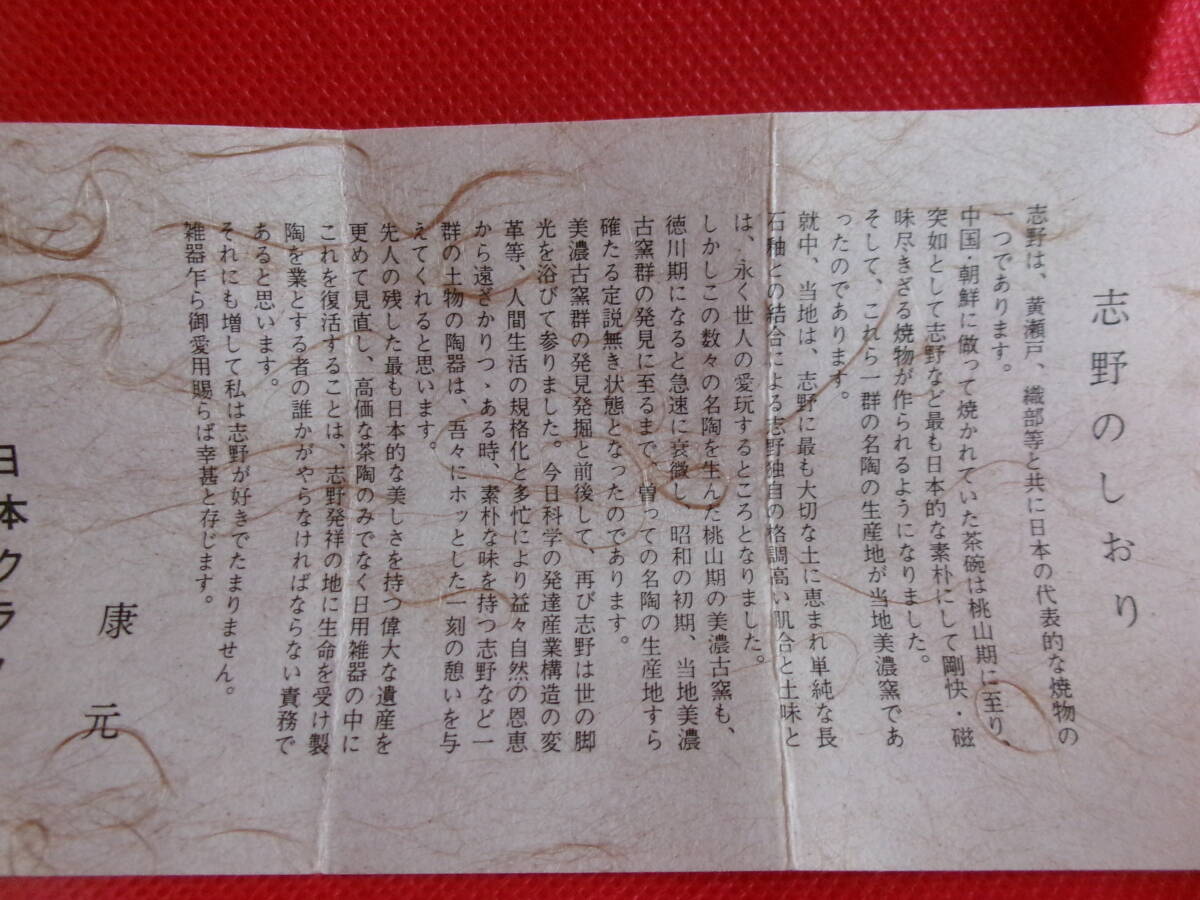 志野のしおり
志野は、黄瀬戸、織部等と共に日本の代表的な焼物の
一つであります。
中国・朝鮮に倣って焼かれていた茶碗は桃山期に至り、
突如として志野など最も日本的な素朴にして剛快・磁
味尽きざる焼物が作られるようになりました。
そして、これら一群の名陶の生産地が当地美濃窯であ
ったのであります。
就中、当地は、志野に最も大切な土に恵まれ単純な長
石釉との結合による志野独自の格調高い肌合と土味と
は、永く世人の愛玩するところとなりました。
しかしこの数々の名陶を生んだ桃山期の美濃古窯も、
徳川期になると急速に衰微し、昭和の初期、当地美濃
古窯群の発見に至るまで、曽っての名陶の生産地すら
確たる定説無き状態となったのであります。
美濃古窯群の発見発掘と前後して、再び志野は世の脚
光を浴びて参りました。今日科学の発達産業構造の変
革等、人間生活の規格化と多忙により益々自然の恩恵
から遠ざかりつゝある時、素朴な味を持つ志野など一
群の土物の陶器は、吾々にホッとした一刻の憩いを与
えてくれると思います。
先人の残した最も日本的な美しさを持つ偉大な遺産を
更めて見直し、高価な茶陶のみでなく日用雑器の中に
これを復活することは、志野発祥の地に生命を受け製
陶を業とする者の誰かがやらなければならない責務で
あると思います。
それにも増して私は志野が好きでたまりません。
雑器乍ら御愛用賜らば幸甚と存じます。
康元
日本クラ